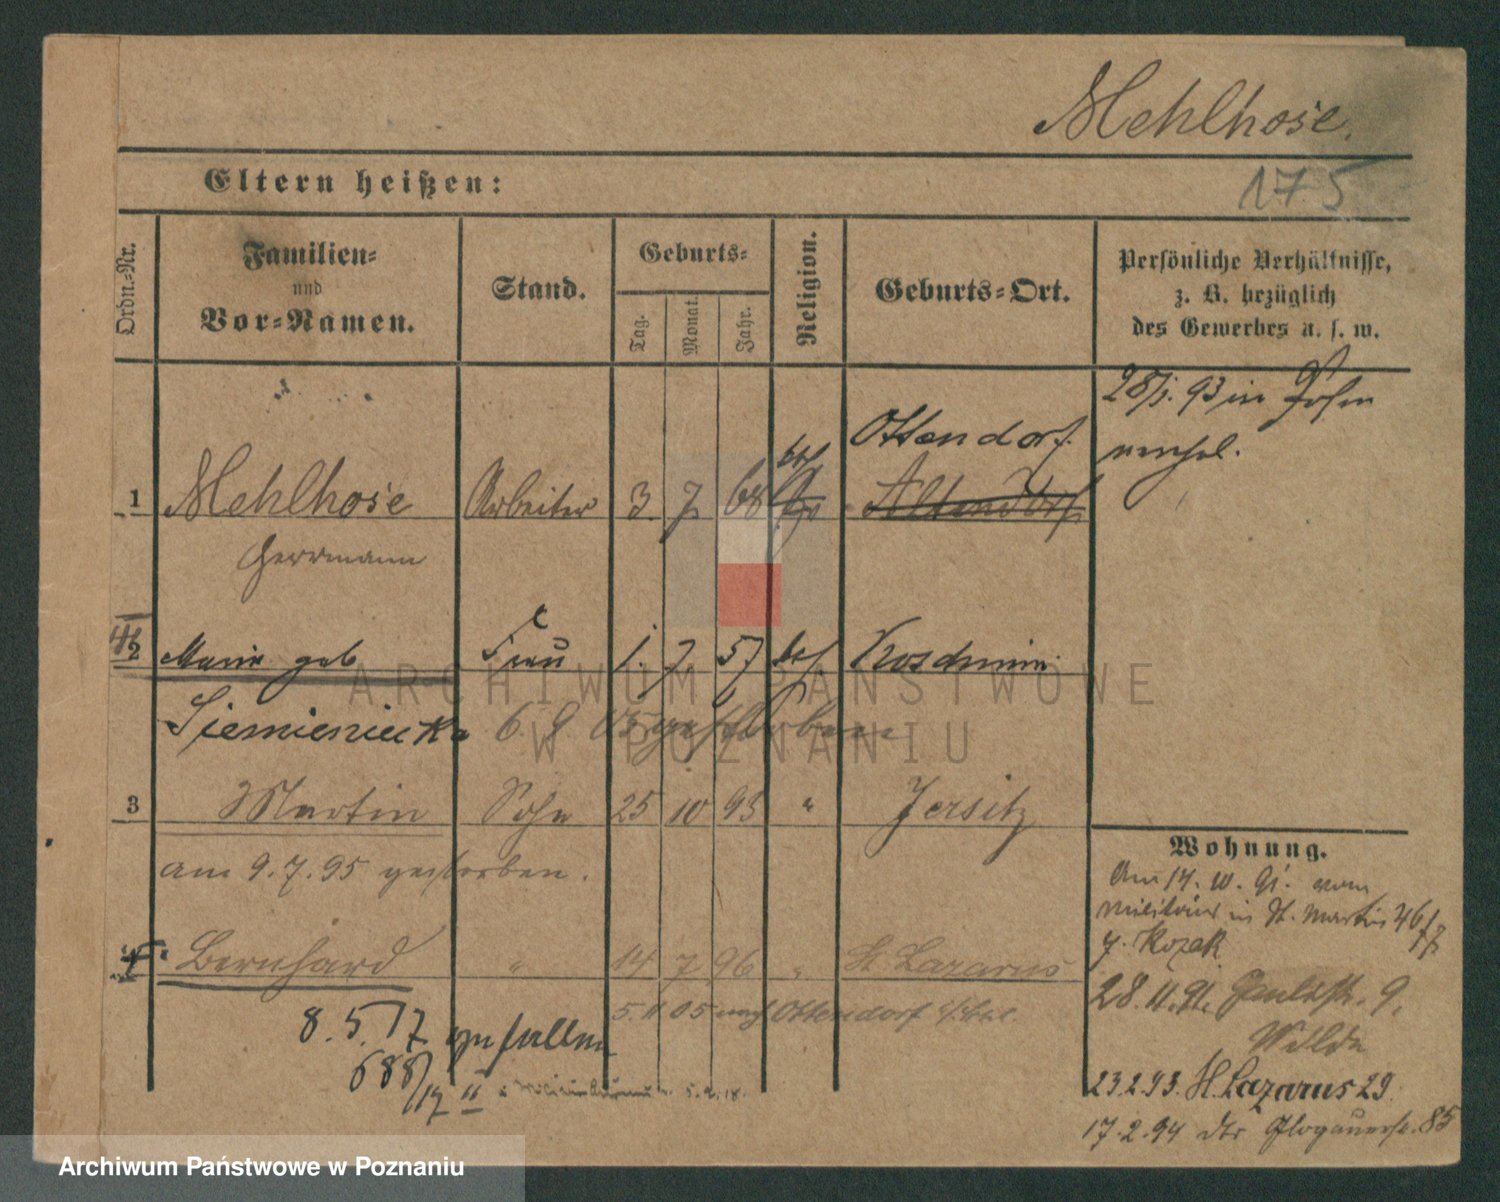 Mehlhose.
Eltern heißen:
175
Ordn.-Nr.
Familien-
und
Vor-Namen.
Stand.
Geburts-
Tag.
Monat.
Jahr.
Religion.
Geburts-Ort.
Persönliche Verhältnisse,
z. B. bezüglich
des Gewerbes u. s. w.
28/1. 93 in Posen
Ottendorf.
1 Mehlhose Arbeiter 3. 7. 68 Altendorf
Herrmann
2 Marie geb Frau 1. 7 57 kth. Koschmin
Siemieniecka 6. 9 05 gestorben
3 Martin Sohn 25 10 93 " Jersitz
am 9.7.95 gestorben.
4. Bernhard " 14 7 96 " St Lazarus
5. 11 05 nach Ottendorf
8. 5. 17 gefallen
688/17 II 5.2.18.
Wohnung.
Am 14. 10. 91. vom
Militair in St. Martin 46/47
b. Kozak
28. 11. 91. 9.
Wilda
23.2.93. St. Lazarus 29.
17.2.94 dto Glogauerstr. 85
ARCHIWUM PAŃSTWOWE
W POZNANIU
Archiwum Państwowe w Poznaniu